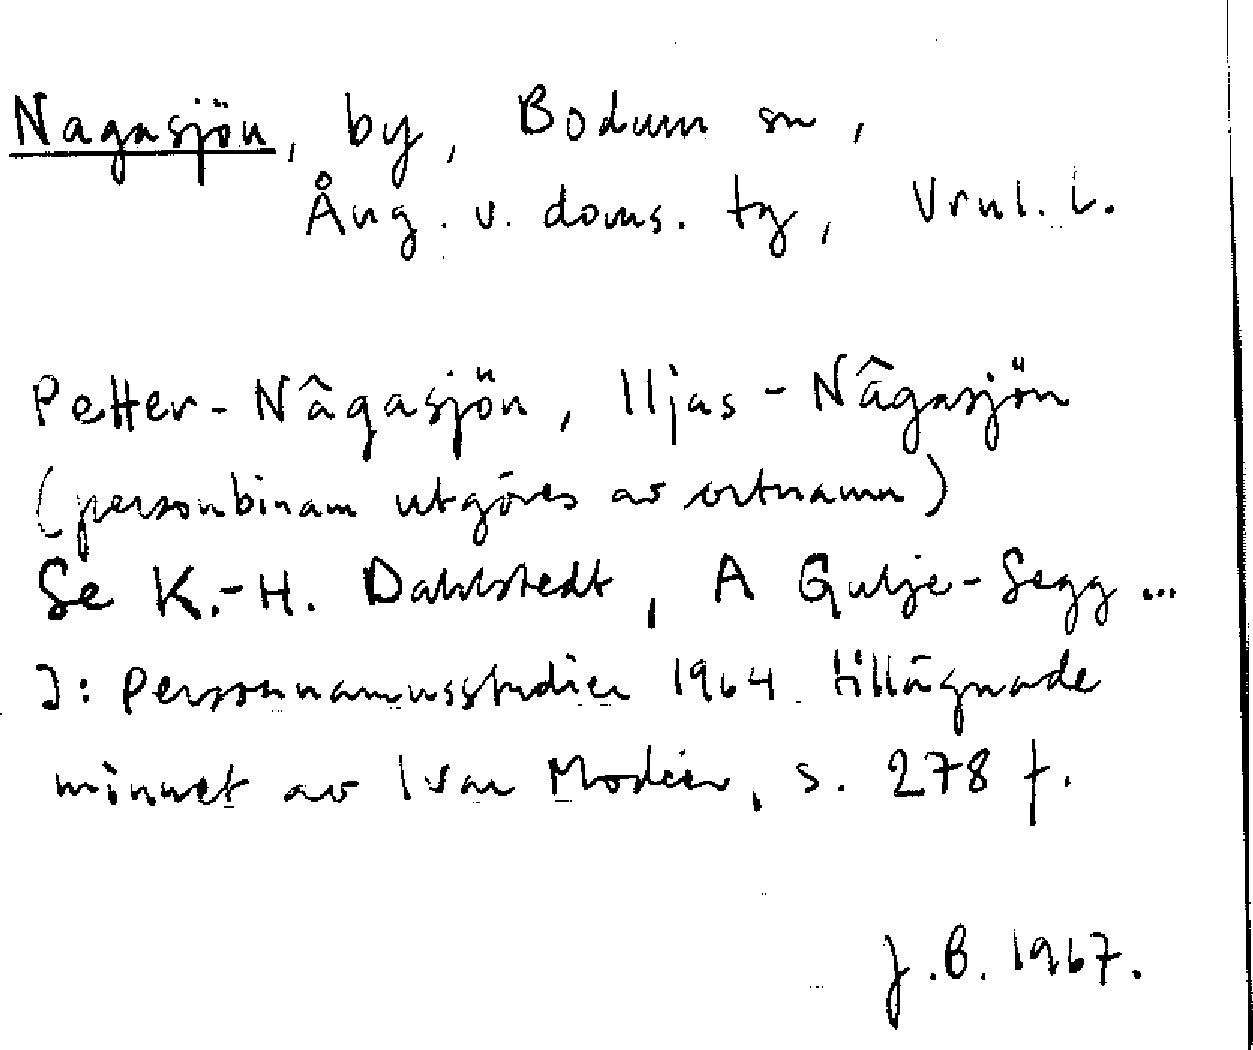 Nagasjön, by, Bodum sn,
Ång. v. doms. tg, Vrnl. l.
Petter-Nâgasjön, Iljas-Nâgasjön
(personbinam utgöres av ortnamn)
Se K.-H. Dahlstedt, A Gulje-Segg...
I: Personnamnsstudier 1964 tillägnade
minnet av Ivar Modéer, s. 278 f.
J.B. 1967.